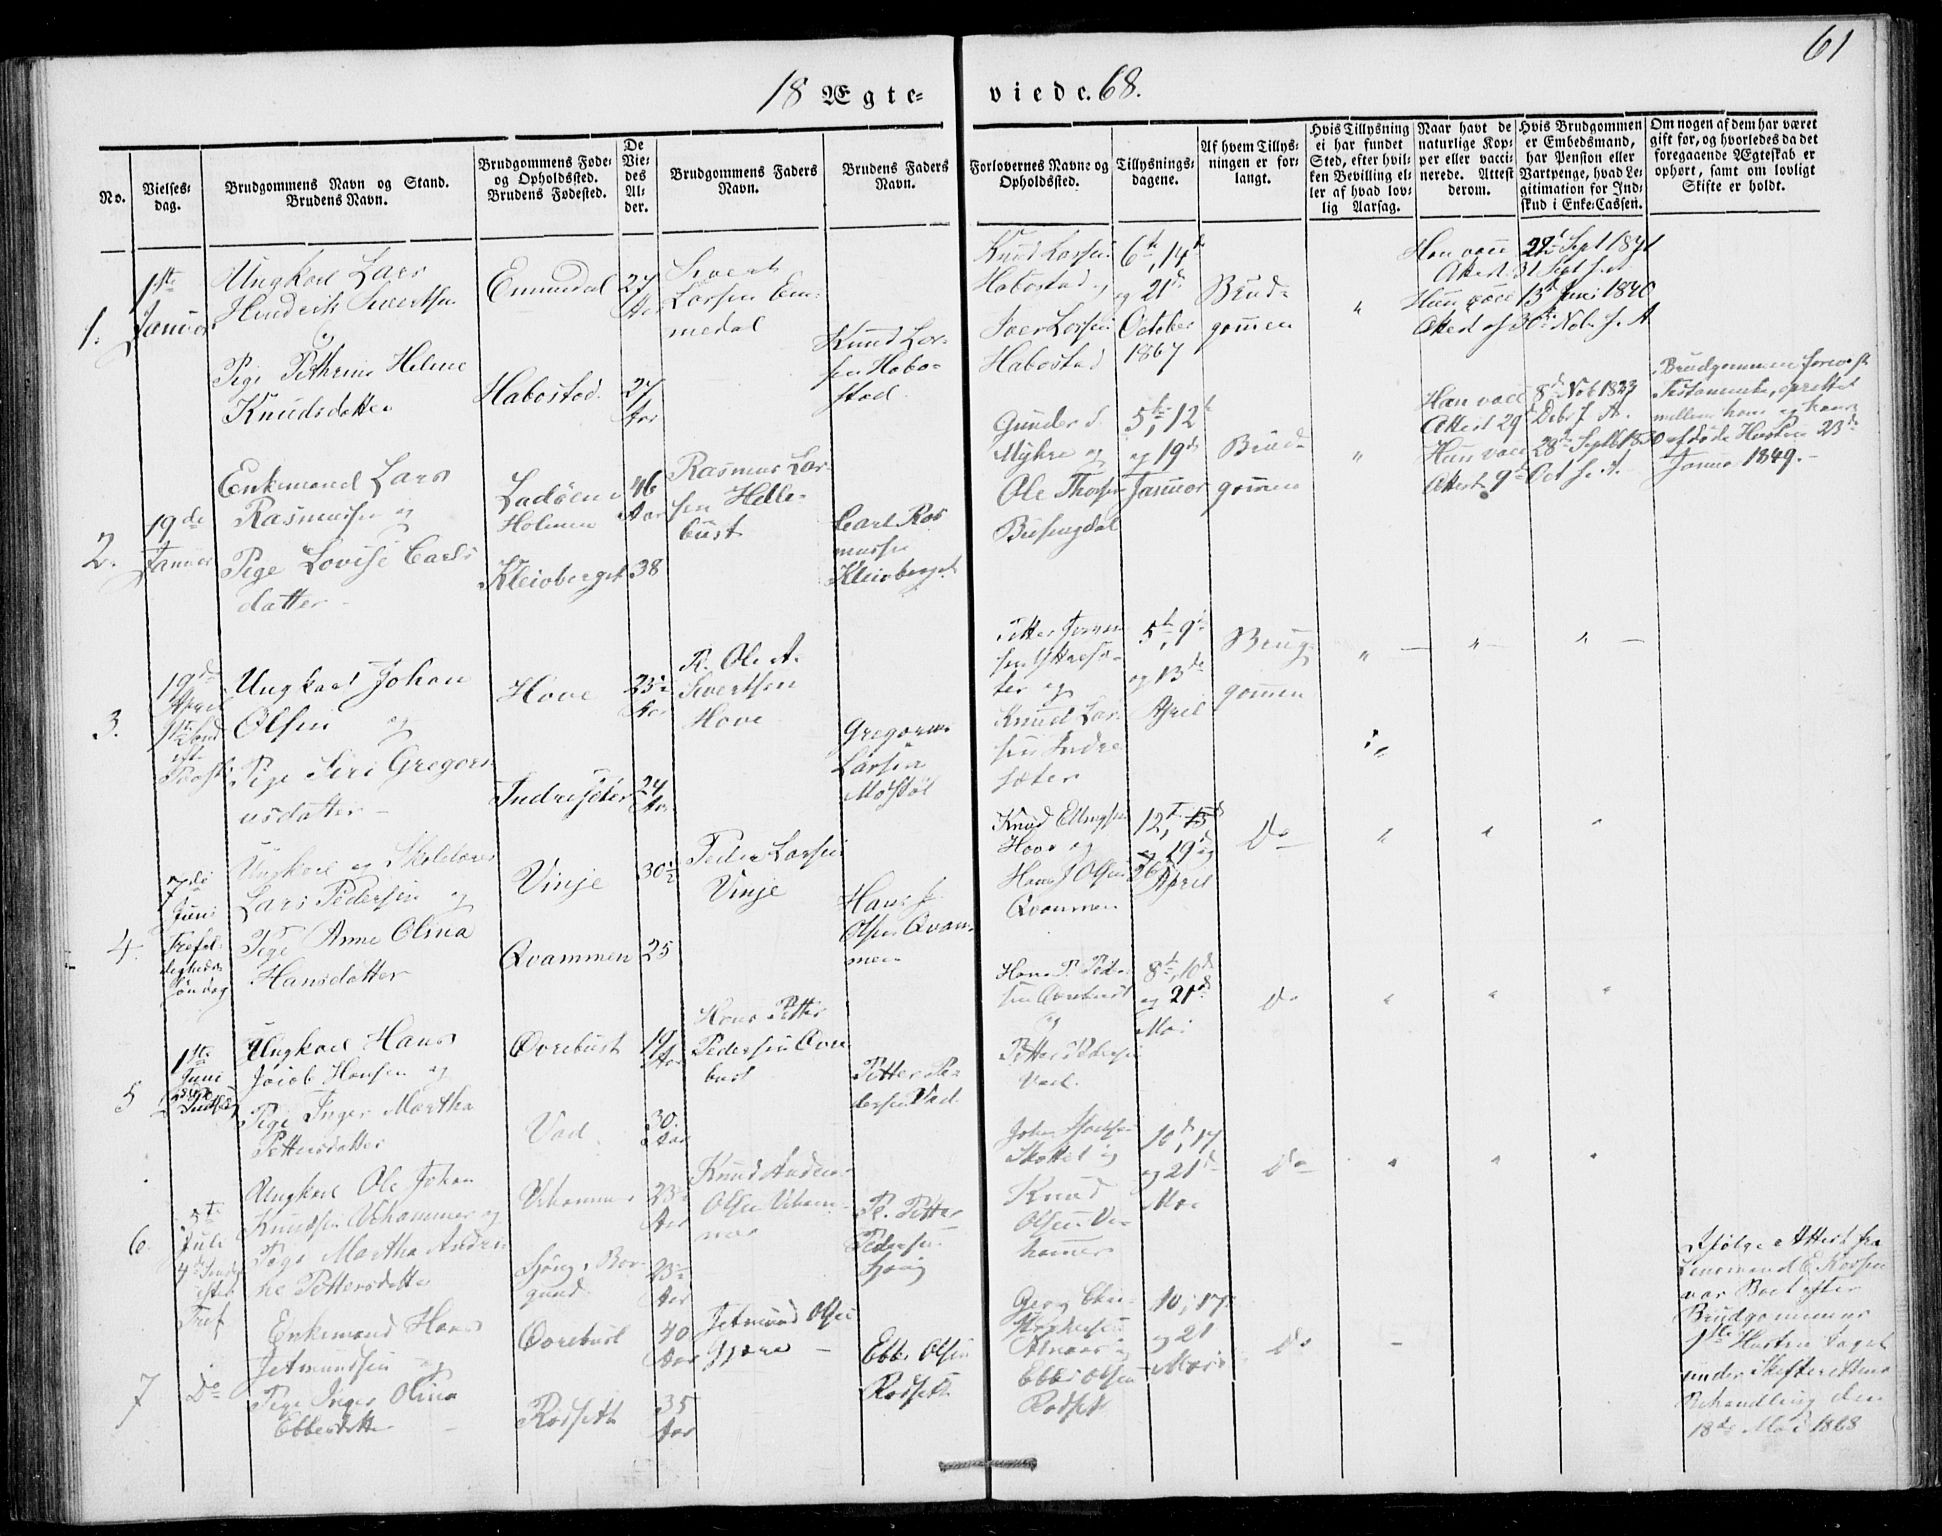 61
18 Ægte- viede. 68.
No.
Vielses-
dag.
Brudgommens Navn og Stand.
Brudens Navn.
Brudgommens Føde-
og Opholdssted.
Brudens Fødested.
De
Vie-
des
Al-
der.
Brudgommens Faders
Navn.
Brudens Faders
Navn.
Forlovernes Navne og
Opholdssted.
Tillysnings-
dagene.
Af hvem Tillys-
ningen er for-
langt.
Hvis Tillysning
ei har fundet
Sted, efter hvil-
ken Bevilling el-
ler af hvad lov-
lig Aarsag.
Naar havt de
naturlige Kop-
per eller vacci-
nerede. Attest
derom.
Hvis Brudgommen
er Embedsmand,
har Pension eller
Vartpenge, hvad Le-
gitimation for Ind-
skud i Enke-Cassen.
Om nogen af dem har været
gift før, og hvorledes da det
foregaaende Ægteskab er
ophørt, samt om lovligt
Skifte er holdt.
1.
1ste
Januar
Ungkarl Lars
Hendrik Sivertsen
og
Pige Pethrine Helene
Knudsdatter
Emmedal
Habostad
27
Aar
27
Aar
Sivert
Larsen Em-
medal
Knud Lar-
sen Habo-
stad
Knud Larsen
Habostad og
Iver Larsen
Habostad
6te, 14de
og 21de
October
1867
Brud-
gommen
"
Han vacc 22de Sept 1841
Attest 31 Sept s. A
Hun vacc 13de Juni 1840
Attest af 30te Nobr s. A
2.
19de
Januar
Enkemand Lars
Rasmusen og
Pige Lovise Carls
datter
Ladøens
Holmen
Kleivberget
46
Aar
38
Rasmus Lar-
sen Helle-
bust
Carl Ras
musen
Kleivberget
Gunder S.
Myhre og
Ole Thorsen
Busengdal
5te, 12te
og 19de
Januar
Brud-
gommen
"
Han vacc 8de Nob 1823
Attest 29 Debr s. A.
Hun vacc 28de Septb 1830
Attest 9de Oct s. A.
Brudgommen foreviste
Testamente, oprettet
mellem ham og hans
afdøde Hustru 23de
Januar 1849.
3.
19de
April
1ste Sønd
eft.
Paaske
Ungkarl Johan
Olsen og
Pige Siri Gregori
usdatter
Hove
Indresæter
23½
Aar
24
Aar
P. Ole A.
Sivertsen
Hove
Gregorius
Larsen
Møstøl
Petter Iversen
Yttresæ-
ter og
Knud Lar-
sen Indre
sæter
5te, 9de
og 13de
April
Brug
gommen
"
"
"
4.
7de
Juni
Trefol-
digheds
søndag
Ungkarl og Skolelærer
Lars Pedersen og
Pige Anne Olina
Hansdatter
Vinje
Qvammen
30½
25
Peder Larsen
Vinje
Hans J.
Olsen Qvam-
men
Knud Ellingsen
Hove og
Hans J Olsen
Qvammen
12te, 13de
og 19de og
26de April
Do
"
"
"
5
1ste
Juni
2den
Pintsedag
Ungkarl Hans
Jacob Hansen og
Pige Inger Martha
Pettersdatter
Ovrebust
Vad
19
Aar
30
Aar
Hans Petter
Pedersen Ovre
bust
Petter Pe-
dersen Vad
Hans P. Peder
sen Ovrebust
og
Petter Pedersen
Vad.
8de, 10de
og 21de
Mai
Do
"
"
"
6.
5te
Juli
4de Søndag
efter
Tref
Ungkarl Ole Johan
Knudsen Vehammer og
Pige Martha Andri
ne Pettersdatter
Vehammer
Sjøng, Bor-
gund
23½
Aar
23½
Aar
Knud Anders
Olsen Veham-
mer
P. Petter
Pedersen
Sjøng
Skottet og
Knud
Olsen Ve-
hammer
10de, 17
og 21de
Mai
Do
"
"
"
7
Do
Enkemand Hans
Jetmundsen og
Pige Inger Olina
Ebbesdatter
Ovrebust
Rodseth
40
Aar
35
Aar
Jetmund Olsen
Ebbe Olsen
Rodseth
Georg
Alnaas og
Ebbe Olsen
Rodseth
10, 17
og 21
Mai
Do
Ifølge Attest fra
Lensmand
var Boet efter
Brudgommens
1ste Hustru taget
under Skifterettens
Behandling den
18de Mai 1868